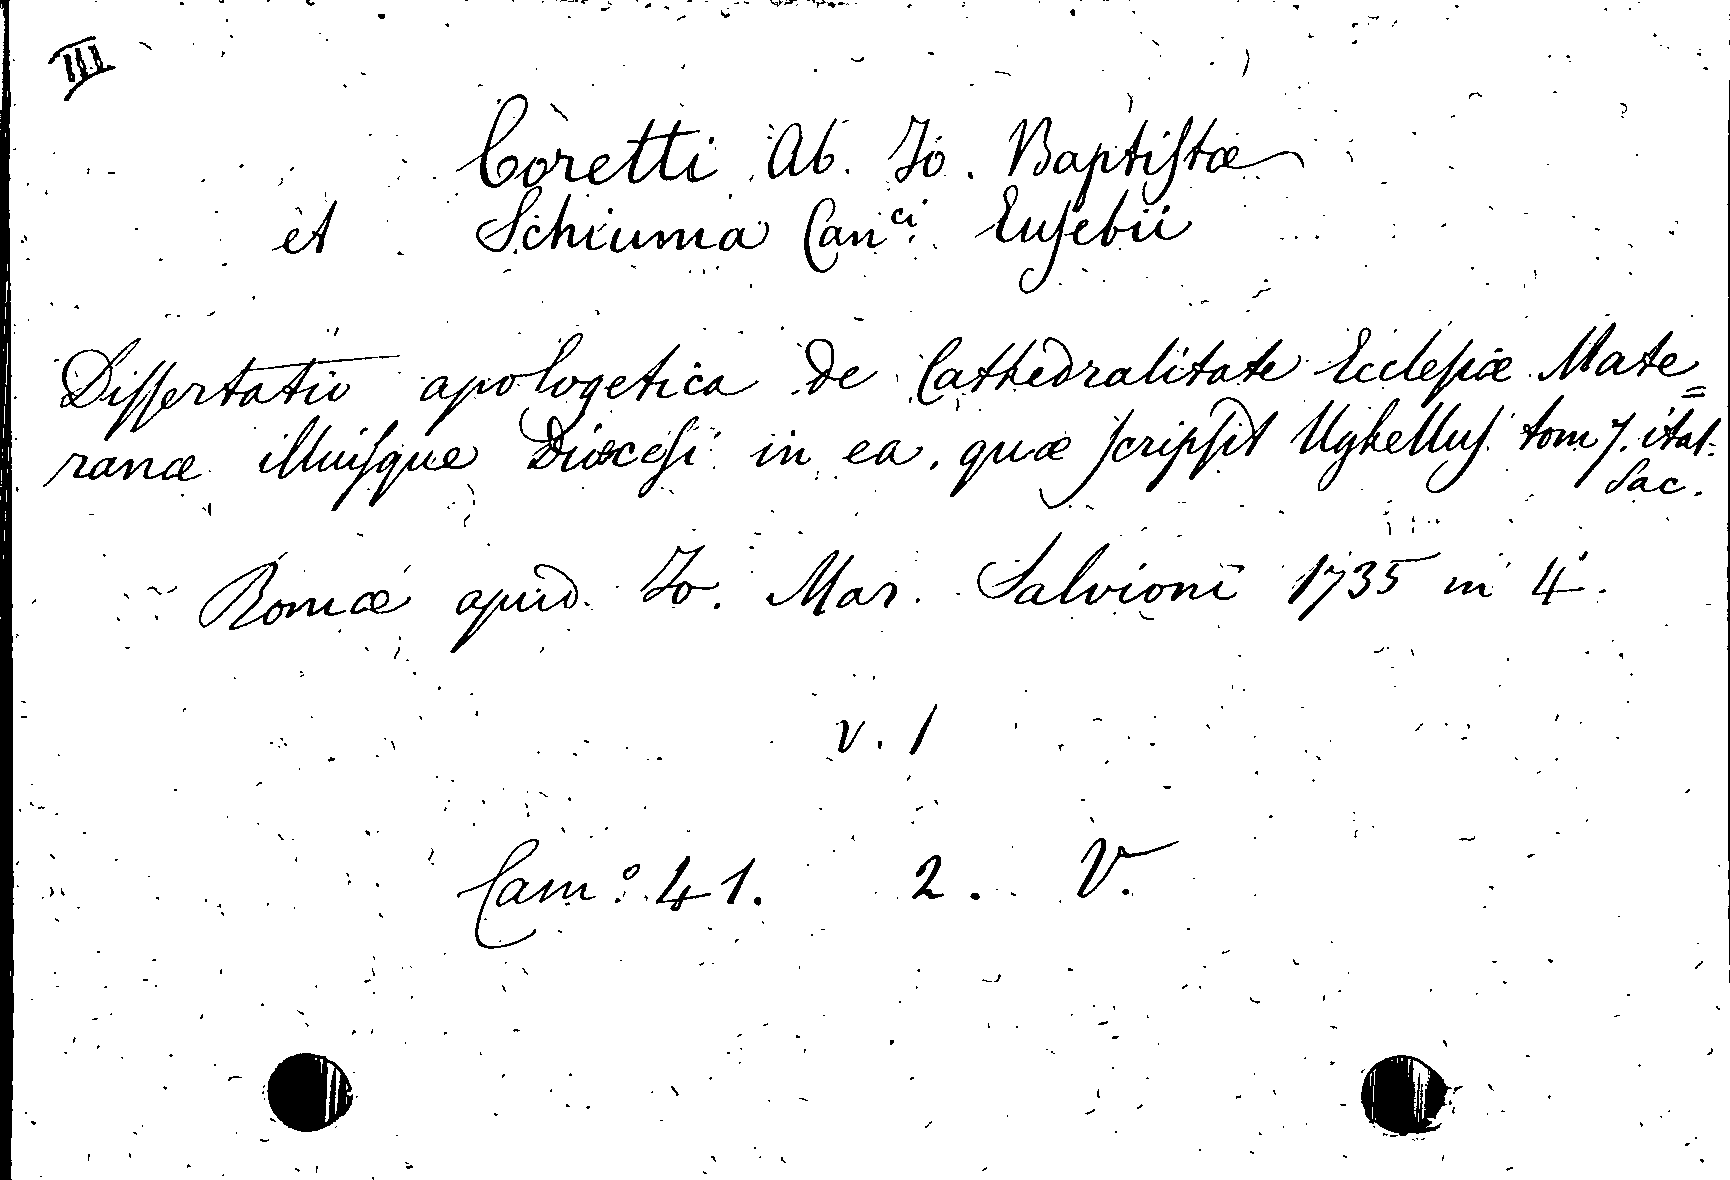 III
Coretti Ab. Jo. Baptistæ
et Schiuma Can.ci Eusebii
Dissertatio apologetica de Cathedralitate Ecclesiæ Mate=
ranæ illiusque Diœcesi in ea, quæ scripsit Ughellus tom 7. ital.
Sac.
Romæ apud Jo. Mar. Salvioni 1735 in 4.
v. 1
Cam.o 41. 2. V.